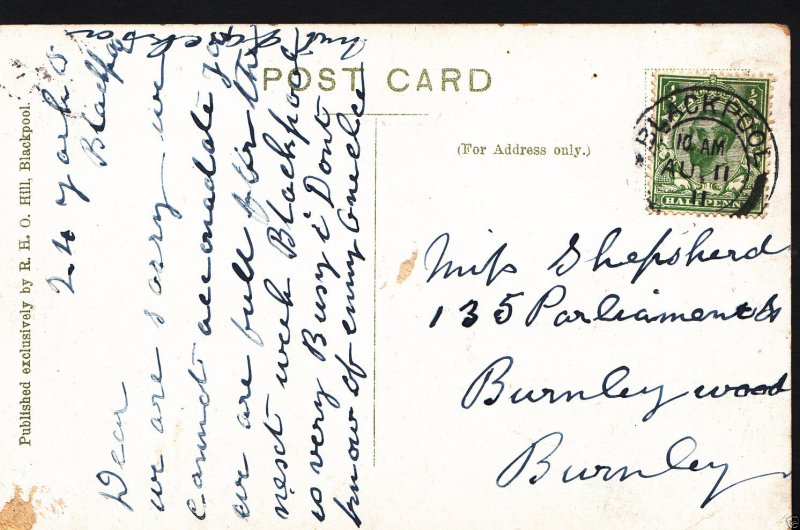 POST CARD
(For Address only.)
Published exclusively by R. H. O. Hill, Blackpool.
BLACKPOOL
10 AM
AU 11
11
HALFPENNY
24 York
Blackpool
Dear
we are sorry we
cannot accomadate you
we are full for the
next week Blackpool
is very Busy i Dont
know of enny one else
Miss Shepsherd
135 Parliament St
Burnley wood
Burnley